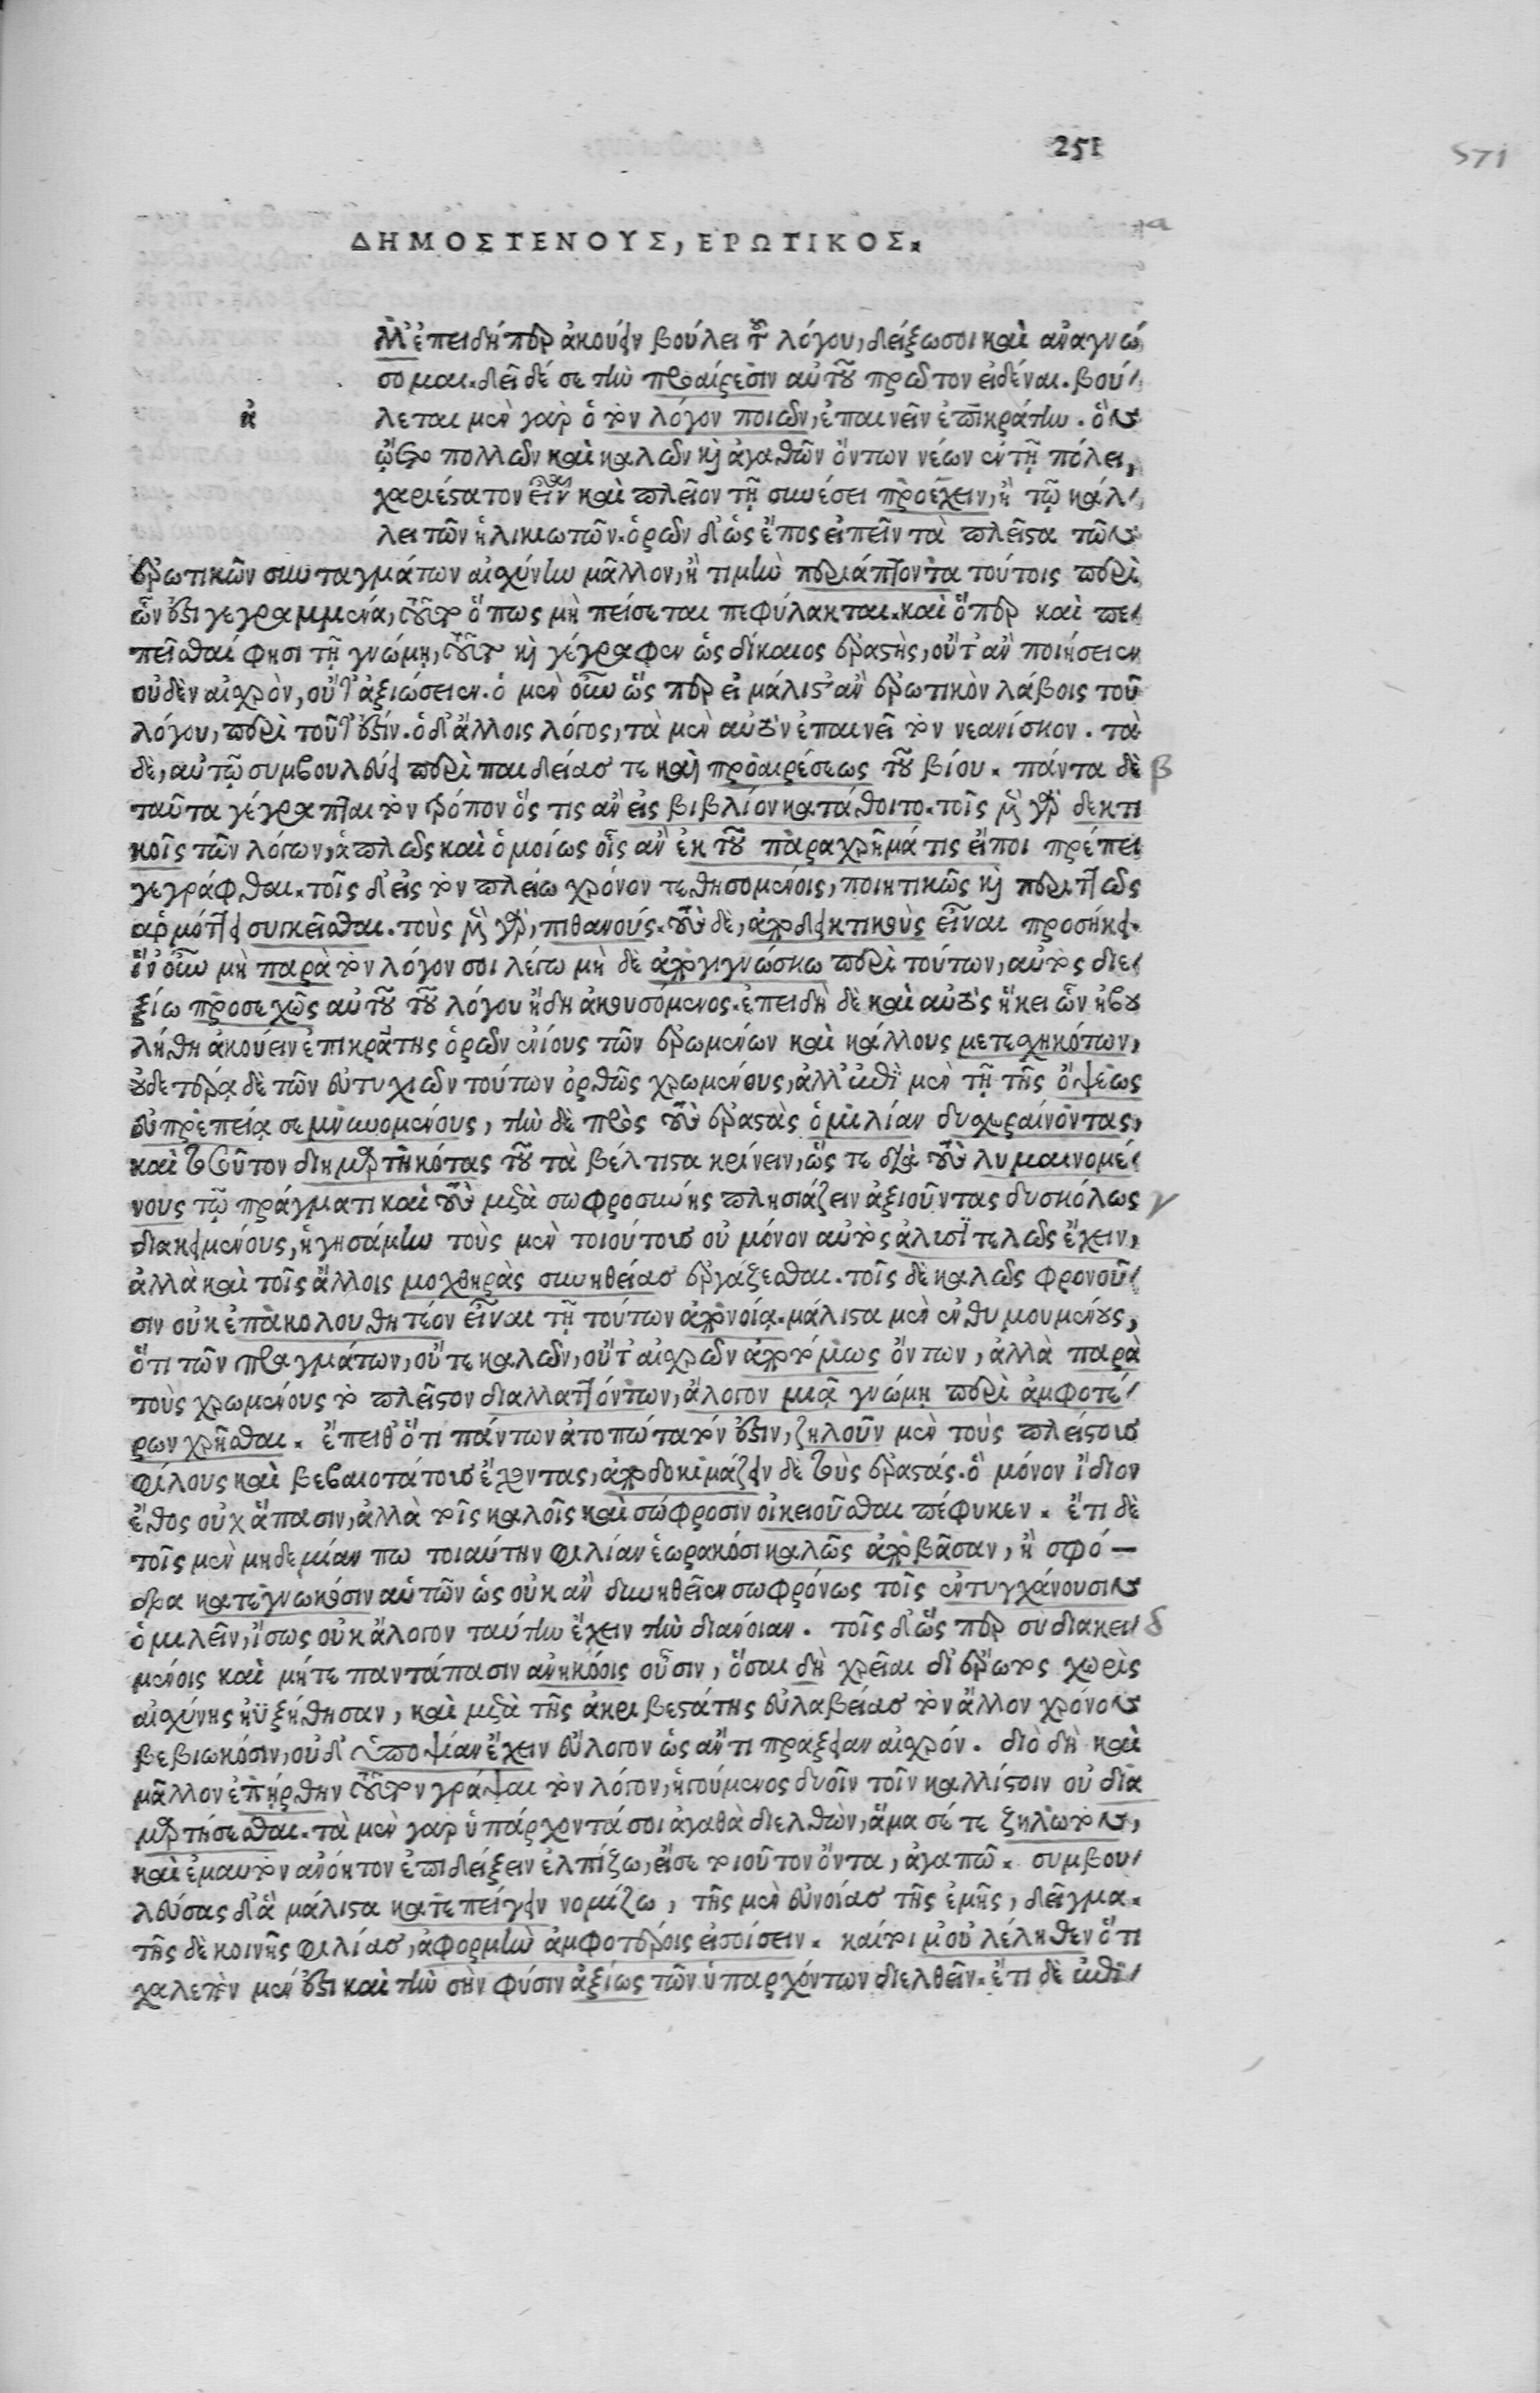 251
571
ΔΗΜΟΣΤΕΝΟΥΣ, ΕΡΩΤΙΚΟΣ.
α
Ἀλλ' ἐπειδήπερ ἀκούειν βούλει τοῦ λόγου, δείξω σοι καὶ ἀναγνώ
σομαι. δεῖ δέ σε τὴν προαίρεσιν αὐτοῦ πρῶτον εἰδέναι. βού
ἀ
λεται μὲν γὰρ ὁ τὸν λόγον ποιῶν, ἐπαινεῖν ἐπικράτην. ὃν
ᾤετο πολλῶν καὶ καλῶν καὶ ἀγαθῶν ὄντων νέων ἐν τῇ πόλει,
χαριέστατον εἶναι καὶ πλεῖον τῇ συνέσει προέχειν, ἢ τῷ κάλ
λει τῶν ἡλικιωτῶν. ὁρῶν δ' ὡς ἔπος εἰπεῖν τὰ πλεῖστα τῶν
ἐρωτικῶν συνταγμάτων αἰσχύνην μᾶλλον, ἢ τιμὴν περιάπτοντα τούτοις περὶ
ὧν ἐστι γεγραμμένα, τοῦτο ὅπως μὴ πείσεται πεφύλακται. καὶ ὅπερ καὶ πε
πεῖσθαί φησι τῇ γνώμῃ, τοῦτο καὶ γέγραφεν ὡς δίκαιος ἐραστὴς, οὔτ' ἂν ποιήσειεν
οὐδὲν αἰσχρὸν, οὔτ' ἀξιώσειεν. ὁ μὲν οὖν ὥς περ εἰ μάλιστ' ἂν ἐρωτικὸν λάβοις τοῦ
λόγου, περὶ τοῦτ' ἐστίν. ὁ δ' ἄλλοις λόγος, τὰ μὲν αὐτὸν ἐπαινεῖ τὸν νεανίσκον. τὰ
δὲ, αὐτῷ συμβουλεύει περὶ παιδείας τε καὶ προαιρέσεως τοῦ βίου. πάντα δὲ
β
ταῦτα γέγραπται τὸν τρόπον ὅς τις ἂν εἰς βιβλίον κατάθοιτο. τοῖς μὲν γὰρ δεκτι
κοῖς τῶν λόγων, ἁπλῶς καὶ ὁμοίως οἷς ἂν ἐκ τοῦ παραχρῆμά τις εἴποι πρέπει
γεγράφθαι. τοῖς δ' εἰς τὸν πλείω χρόνον τεθησομένοις, ποιητικῶς καὶ περιττῶς
ἁρμόττει συγκεῖσθαι. τοὺς μὲν γὰρ, πιθανούς. τοὺς δὲ, ἀποδεικτικοὺς εἶναι προσήκει.
ἵν' οὖν μὴ παρὰ τὸν λόγον σοι λέγω μὴ δὲ ἀπογιγνώσκω περὶ τούτων, αὐτὸς διε
ξίω προσεχῶς αὐτοῦ τοῦ λόγου ἤδη ἀκουσόμενος. ἐπειδὴ δὲ καὶ αὐτὸς ἥκει ὧν ἠβου
λήθη ἀκούειν ἐπικράτης ὁρῶν ἐνίους τῶν ἐρωμένων καὶ κάλλους μετεσχηκότων,
οὐδετέρᾳ δὲ τῶν εὐτυχιῶν τούτων ὀρθῶς χρωμένους, ἀλλ' ἐπὶ μὲν τῇ τῆς ὄψεως
εὐπρεπείᾳ σεμνυνομένους, τὴν δὲ πρὸς τοὺς ἐραστὰς ὁμιλίαν δυσχεραίνοντας,
καὶ τοσοῦτον διημαρτηκότας τοῦ τὰ βέλτιστα κρίνειν, ὥς τε διὰ τοὺς λυμαινομέ
νους τῷ πράγματι καὶ τοὺς μετὰ σωφροσύνης πλησιάζειν ἀξιοῦντας δυσκόλως
γ
διακειμένους, ἡγησάμην τοὺς μὲν τοιούτους οὐ μόνον αὑτοῖς ἀλυσιτελῶς ἔχειν,
ἀλλὰ καὶ τοῖς ἄλλοις μοχθηρὰς συνηθείας ἐργάζεσθαι. τοῖς δὲ καλῶς φρονοῦ
σιν οὐκ ἐπακολουθητέον εἶναι τῇ τούτων ἀπονοίᾳ. μάλιστα μὲν ἐνθυμουμένους,
ὅτι τῶν πραγμάτων, οὔτε καλῶν, οὔτ' αἰσχρῶν ἀποτόμως ὄντων, ἀλλὰ παρὰ
τοὺς χρωμένους τὸ πλεῖστον διαλλαττόντων, ἄλογον μιᾷ γνώμῃ περὶ ἀμφοτέ
ρων χρῆσθαι. ἔπειθ' ὅτι πάντων ἀτοπώτατόν ἐστιν, ζηλοῦν μὲν τοὺς πλείστους
φίλους καὶ βεβαιοτάτους ἔχοντας, ἀποδοκιμάζειν δὲ τοὺς ἐραστάς. ὃ μόνον ἴδιον
ἔθος οὐχ ἅπασιν, ἀλλὰ τοῖς καλοῖς καὶ σώφροσιν οἰκειοῦσθαι πέφυκεν. ἔτι δὲ
τοῖς μὲν μηδεμίαν πω τοιαύτην φιλίαν ἑωρακόσι καλῶς ἀποβᾶσαν, ἢ σφό
δρα κατεγνωκόσιν αὑτῶν ὡς οὐκ ἂν δυνηθεῖεν σωφρόνως τοῖς ἐντυγχάνουσιν
ὁμιλεῖν, ἴσως οὐκ ἄλογον ταύτην ἔχειν τὴν διάνοιαν. τοῖς δ' ὥς περ συ διακει
δ
μένοις καὶ μήτε παντάπασιν ἀνηκόοις οὖσιν, ὅσαι δὴ χρεῖαι δι' ἔρωτος χωρὶς
αἰσχύνης ηὐξήθησαν, καὶ μετὰ τῆς ἀκριβεστάτης εὐλαβείας τὸν ἄλλον χρόνον
βεβιωκόσιν, οὐδ' ὑποψίαν ἔχειν εὔλογον ὡς ἄν τι πράξειαν αἰσχρόν. διὸ δὴ καὶ
μᾶλλον ἐπήρθην τοῦτον γράψαι τὸν λόγον, ἡγούμενος δυοῖν τοῖν καλλίστοιν οὐ δια
μαρτήσεσθαι. τὰ μὲν γὰρ ὑπάρχοντά σοι ἀγαθὰ διελθὼν, ἅμα σέ τε ζηλωτὸν,
καὶ ἐμαυτὸν ἀνόητον ἐπιδείξειν ἐλπίζω, εἴ σε τοιοῦτον ὄντα, ἀγαπῶ. συμβου
λεύσας δ' ἃ μάλιστα κατεπείγειν νομίζω, τῆς μὲν εὐνοίας τῆς ἐμῆς, δεῖγμα.
τῆς δὲ κοινῆς φιλίας, ἀφορμὴν ἀμφοτέροις εἰσοίσειν. καίτοι μ' οὐ λέληθεν ὅτι
χαλεπὸν μέν ἐστι καὶ τὴν σὴν φύσιν ἀξίως τῶν ὑπαρχόντων διελθεῖν. ἔτι δὲ ἐπι